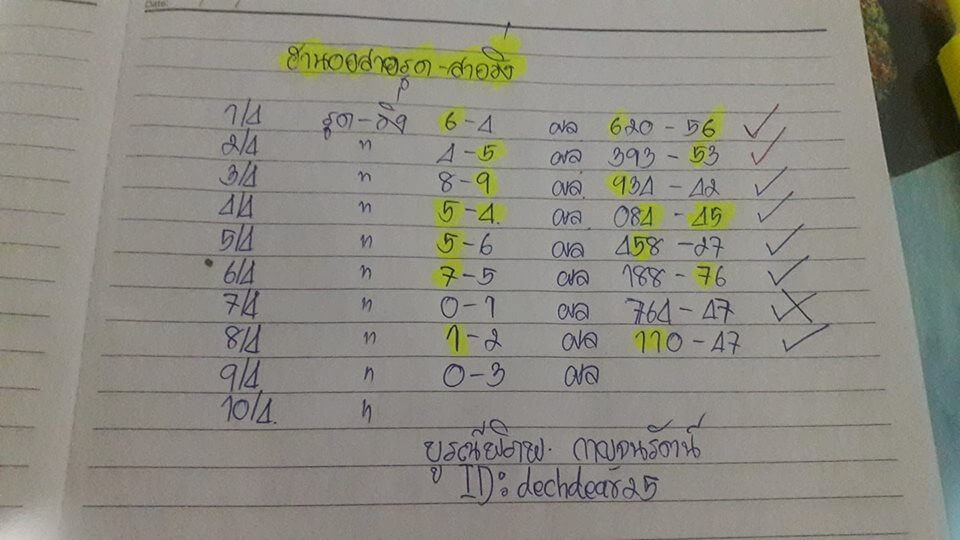 Date:
ฮานอยสายรูด-สายวิ่ง
1/4 รูด-วิ่ง 6-4 ผล 620-56 ✓
2/4 " 4-5 ผล 393-53 ✓
3/4 " 8-9 ผล 934-42 ✓
4/4 " 5-4 ผล 084-45 ✓
5/4 " 5-6 ผล 458-27 ✓
6/4 " 7-5 ผล 188-76 ✓
7/4 " 0-1 ผล 764-47 ✗
8/4 " 1-2 ผล 110-47 ✓
9/4 " 0-3 ผล
10/4 "
กาญจนรัตน์
ID: dechdear25